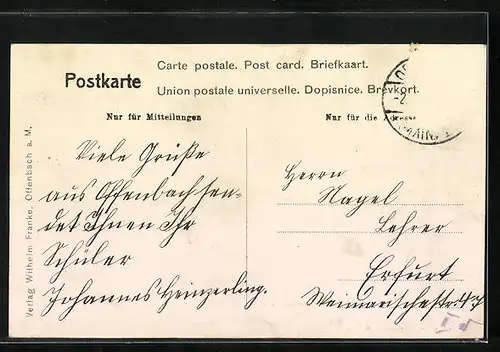 Carte postale. Post card. Briefkaart.
Postkarte
Union postale universelle. Dopisnice. Brevkort.
Nur für Mitteilungen
Nur für die Adresse
Viele Grüße
aus Offenbach sen-
det Ihnen Ihr
Schüler
Johannes Heinzerling.
Herrn
Nagel
Lehrer
Erfurt
Weimarischestr.
Verlag Wilhelm Franke, Offenbach a. M.